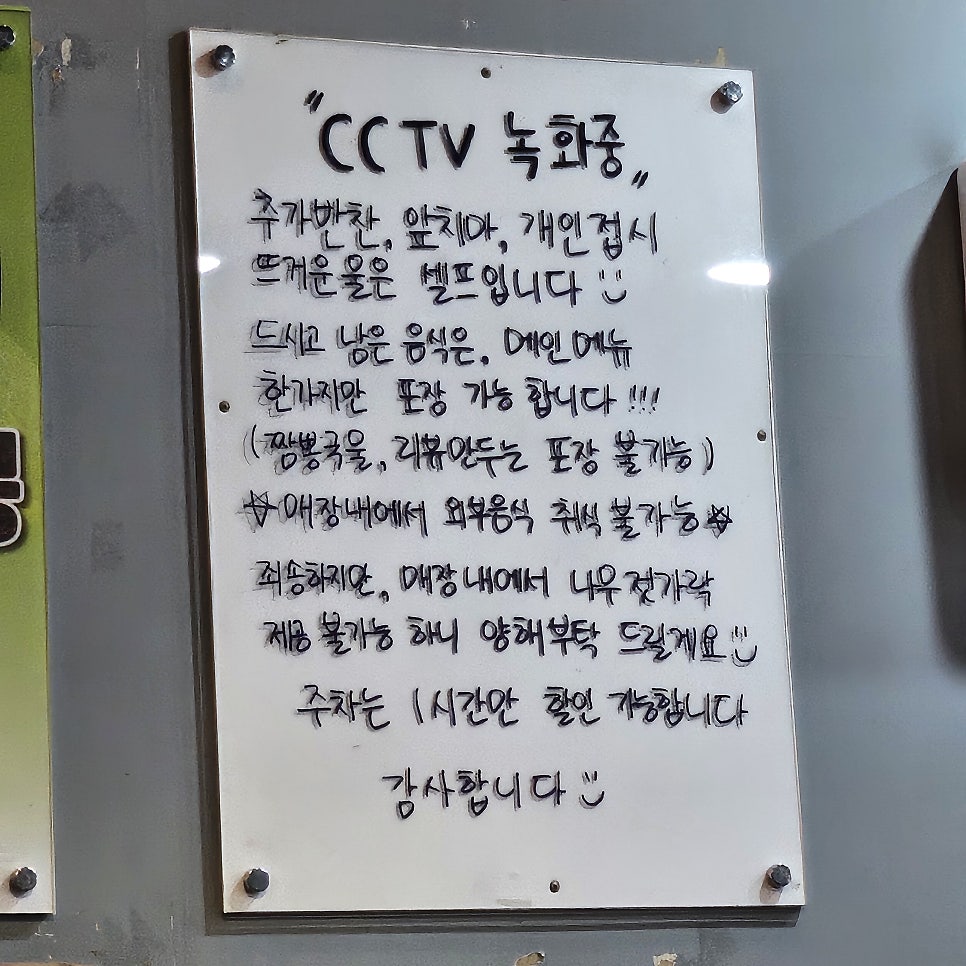 "CCTV 녹화중"
추가반찬, 앞치마, 개인접시
뜨거운물은 셀프입니다 :)
드시고 남은 음식은, 메인메뉴
한가지만 포장 가능합니다 !!!
(짬뽕국물, 리뷰만두는 포장 불가능)
☆매장내에서 외부음식 취식 불가능☆
죄송하지만, 매장내에서 나무젓가락
제공 불가능 하니 양해부탁 드릴게요 :)
주차는 1시간만 할인 가능합니다
감사합니다 :)